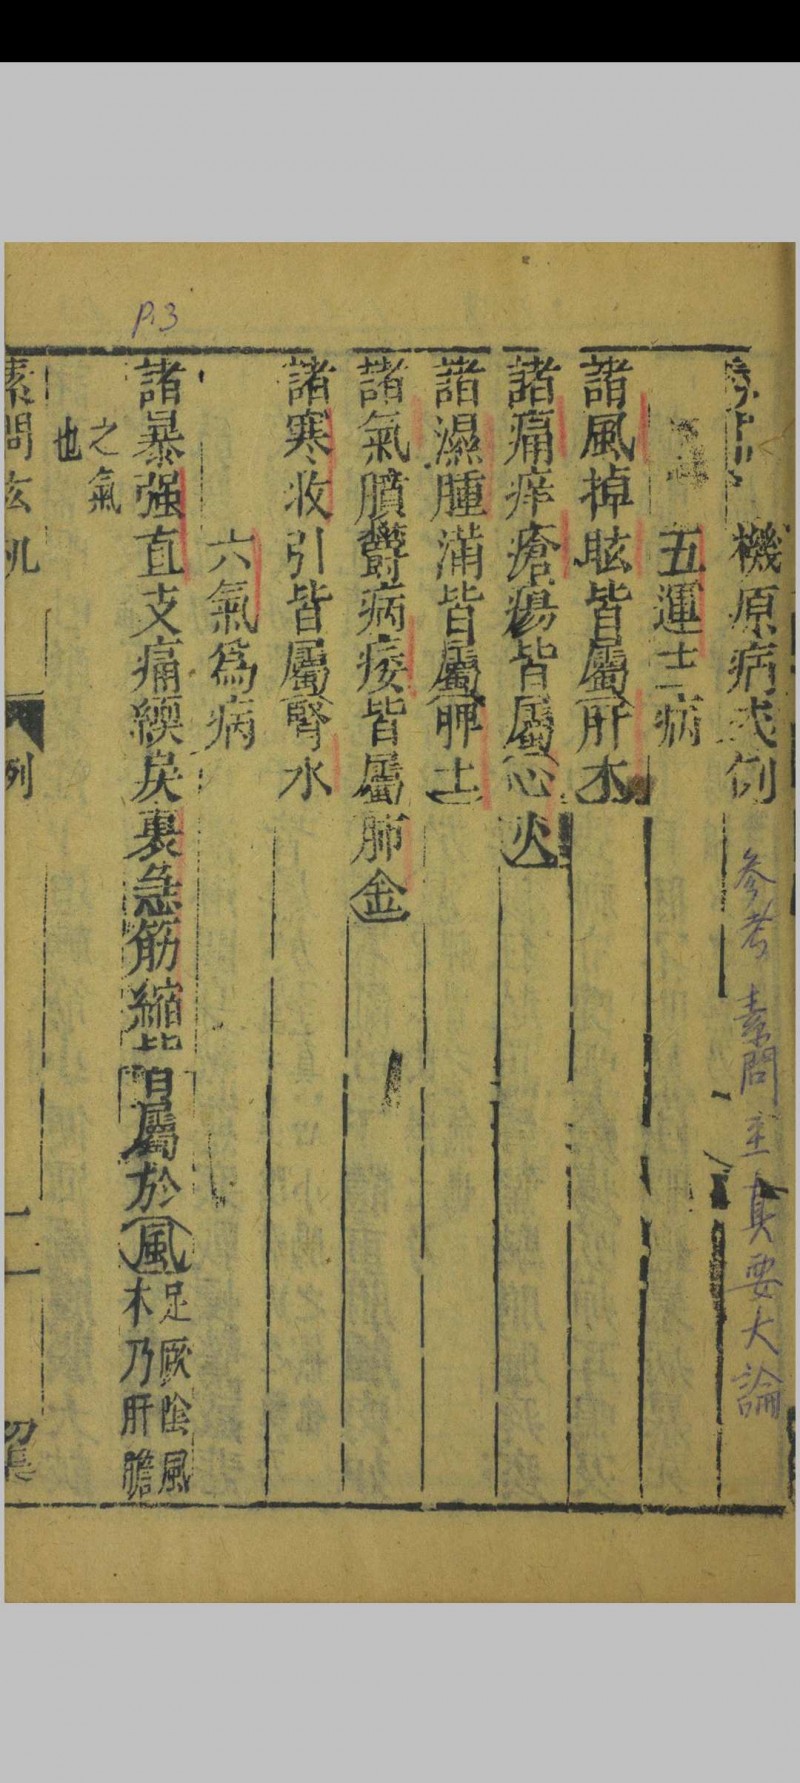 機原病式例
參考 素問至真要大論
五運主病
諸風掉眩皆屬肝木
諸痛痒瘡瘍皆屬心火
諸濕腫滿皆屬脾土
諸氣膹鬱病痿皆屬肺金
諸寒收引皆屬腎水
六氣爲病
P.3
諸暴强直支痛緛戾裏急筋縮皆屬於風
足厥陰風
木乃肝膽
之氣
也
素問玄机
例
一
初集